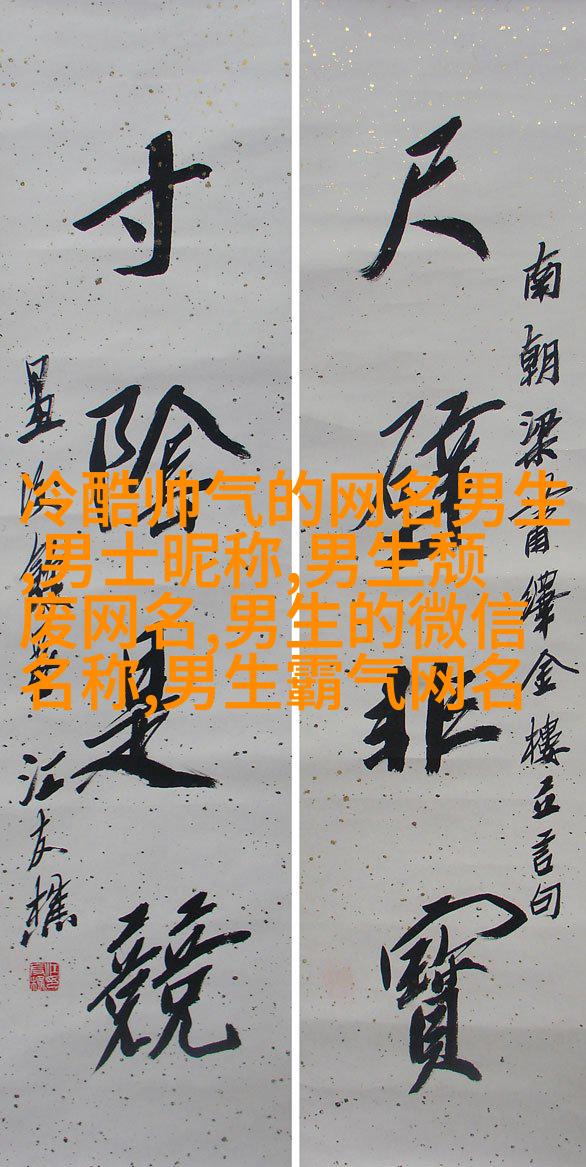 尺璧非寶
南朝梁蕭繹金樓子立言句
寸陰是競
汪友樵
冷酷帅气的网名男生
,男士昵称,男生颓
废网名,男生的微信
名称,男生霸气网名